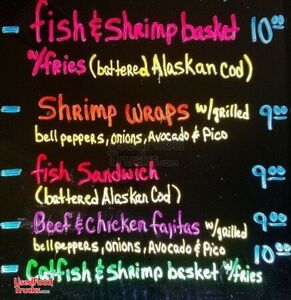 - fish & Shrimp basket 10.00
w/fries (battered Alaskan Cod)
- Shrimp Wraps w/grilled 9.00
bell peppers, onions, Avocado & Pico
- fish Sandwich 9.00
(battered Alaskan Cod)
- Beef & Chicken fajitas w/grilled 9.00
bell peppers, onions, Avocado & Pico
- Catfish & shrimp basket w/fries 10.00
UsedFood
Trucks.com